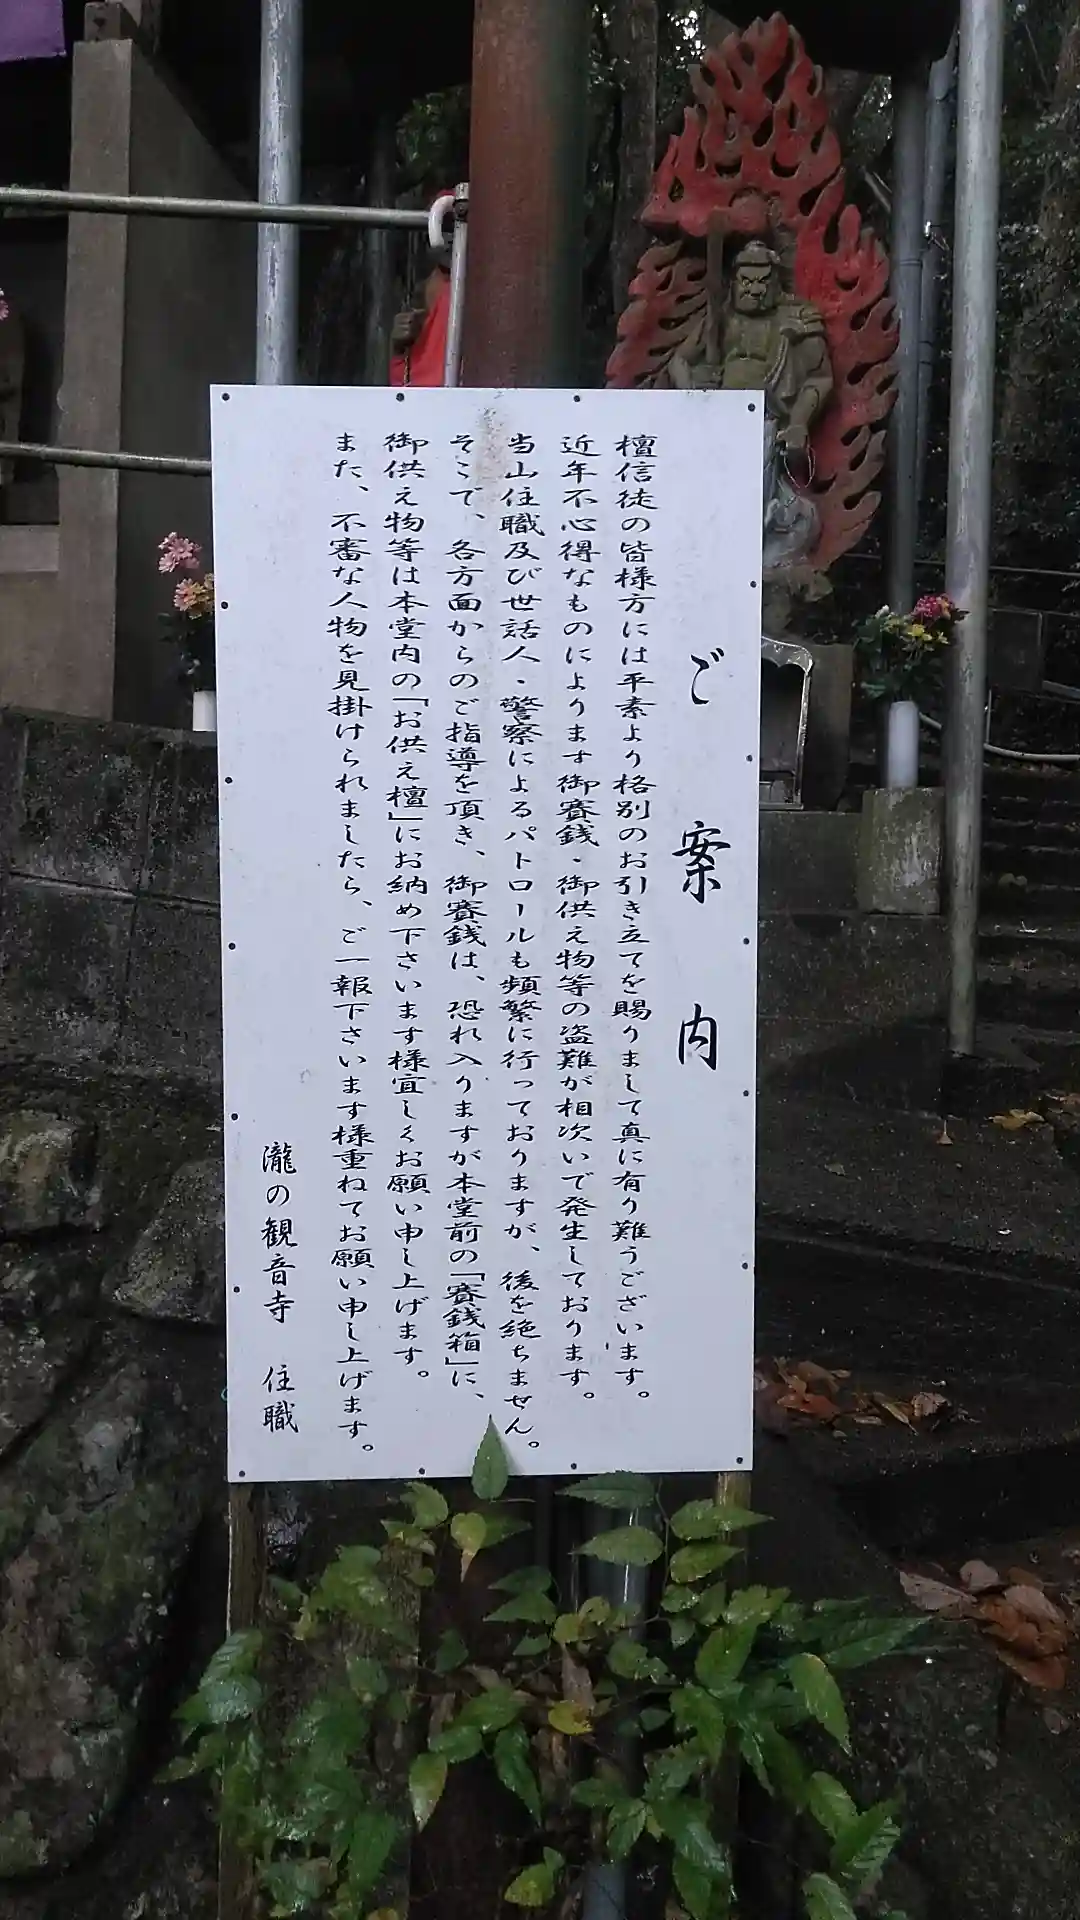 ご案内
檀信徒の皆様方には平素より格別のお引き立てを賜りまして真に有り難うございます。
近年不心得なものによります御賽銭・御供え物等の盗難が相次いで発生しております。
当山住職及び世話人・警察によるパトロールも頻繁に行っておりますが、後を絶ちません。
そこで、各方面からのご指導を頂き、御賽銭は、恐れ入りますが本堂前の「賽銭箱」に、
御供え物等は本堂内の「お供え檀」にお納め下さいます様宜しくお願い申し上げます。
また、不審な人物を見掛けられましたら、ご一報下さいます様重ねてお願い申し上げます。
瀧の観音寺 住職